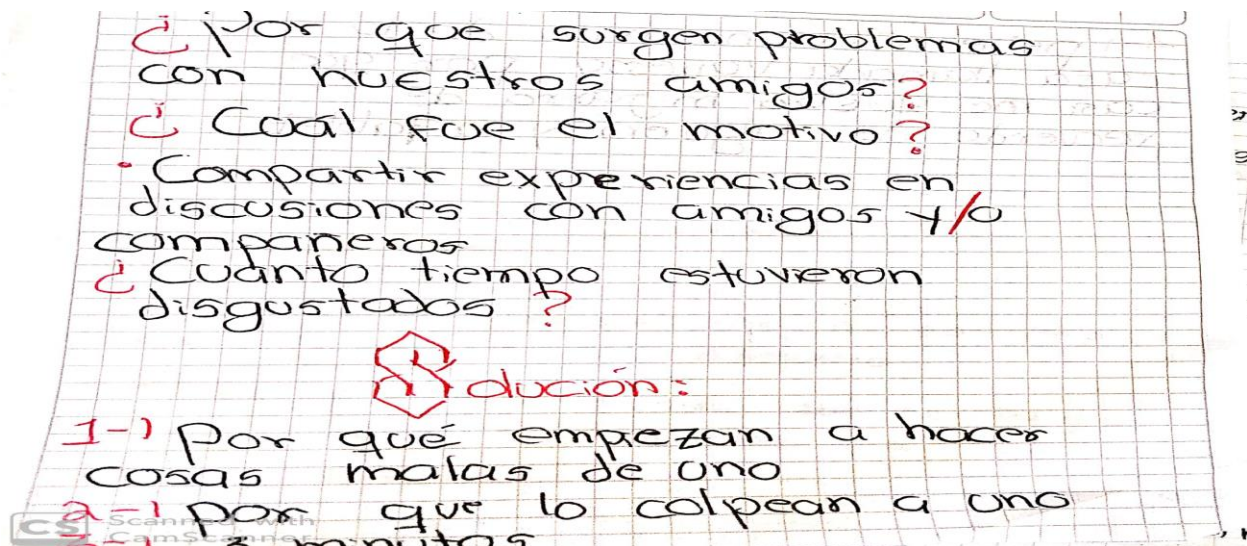 ¿Por que surgen problemas
con nuestros amigos?
¿Coal fue el motivo?
• Compartir experiencias en
discusiones con amigos y/o
compañeros
¿Cuánto tiempo estuvieron
disgustados?
Solución:
1-) Por qué empiezan a hacer
cosas malas de uno
2-) por que lo colpean a uno
3-) 3 minutos
CS Scanned with
CamScanner